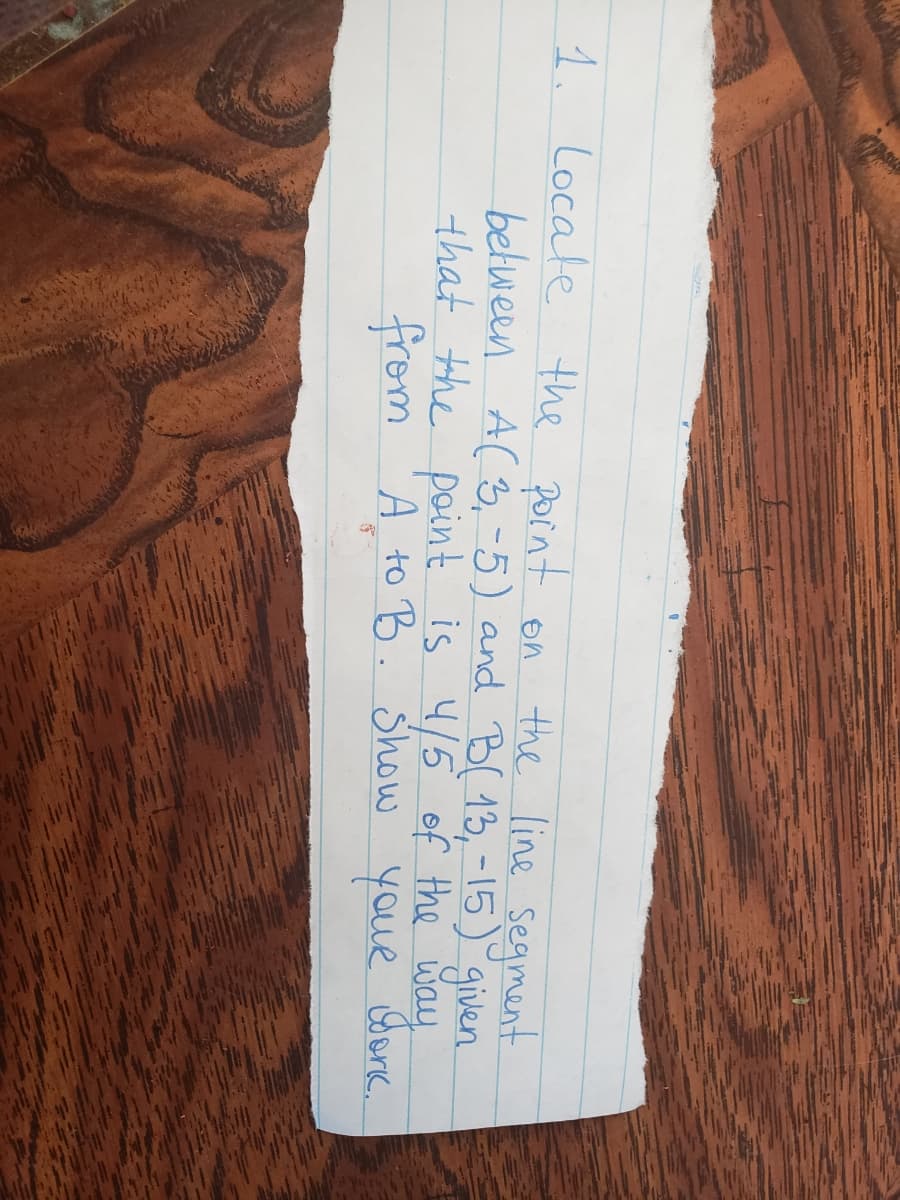 1. Locate the point on the line segment
between A(3,-5) and B(13,-15) given
that the point is 4/5 of the way
from A to B. Show your work.